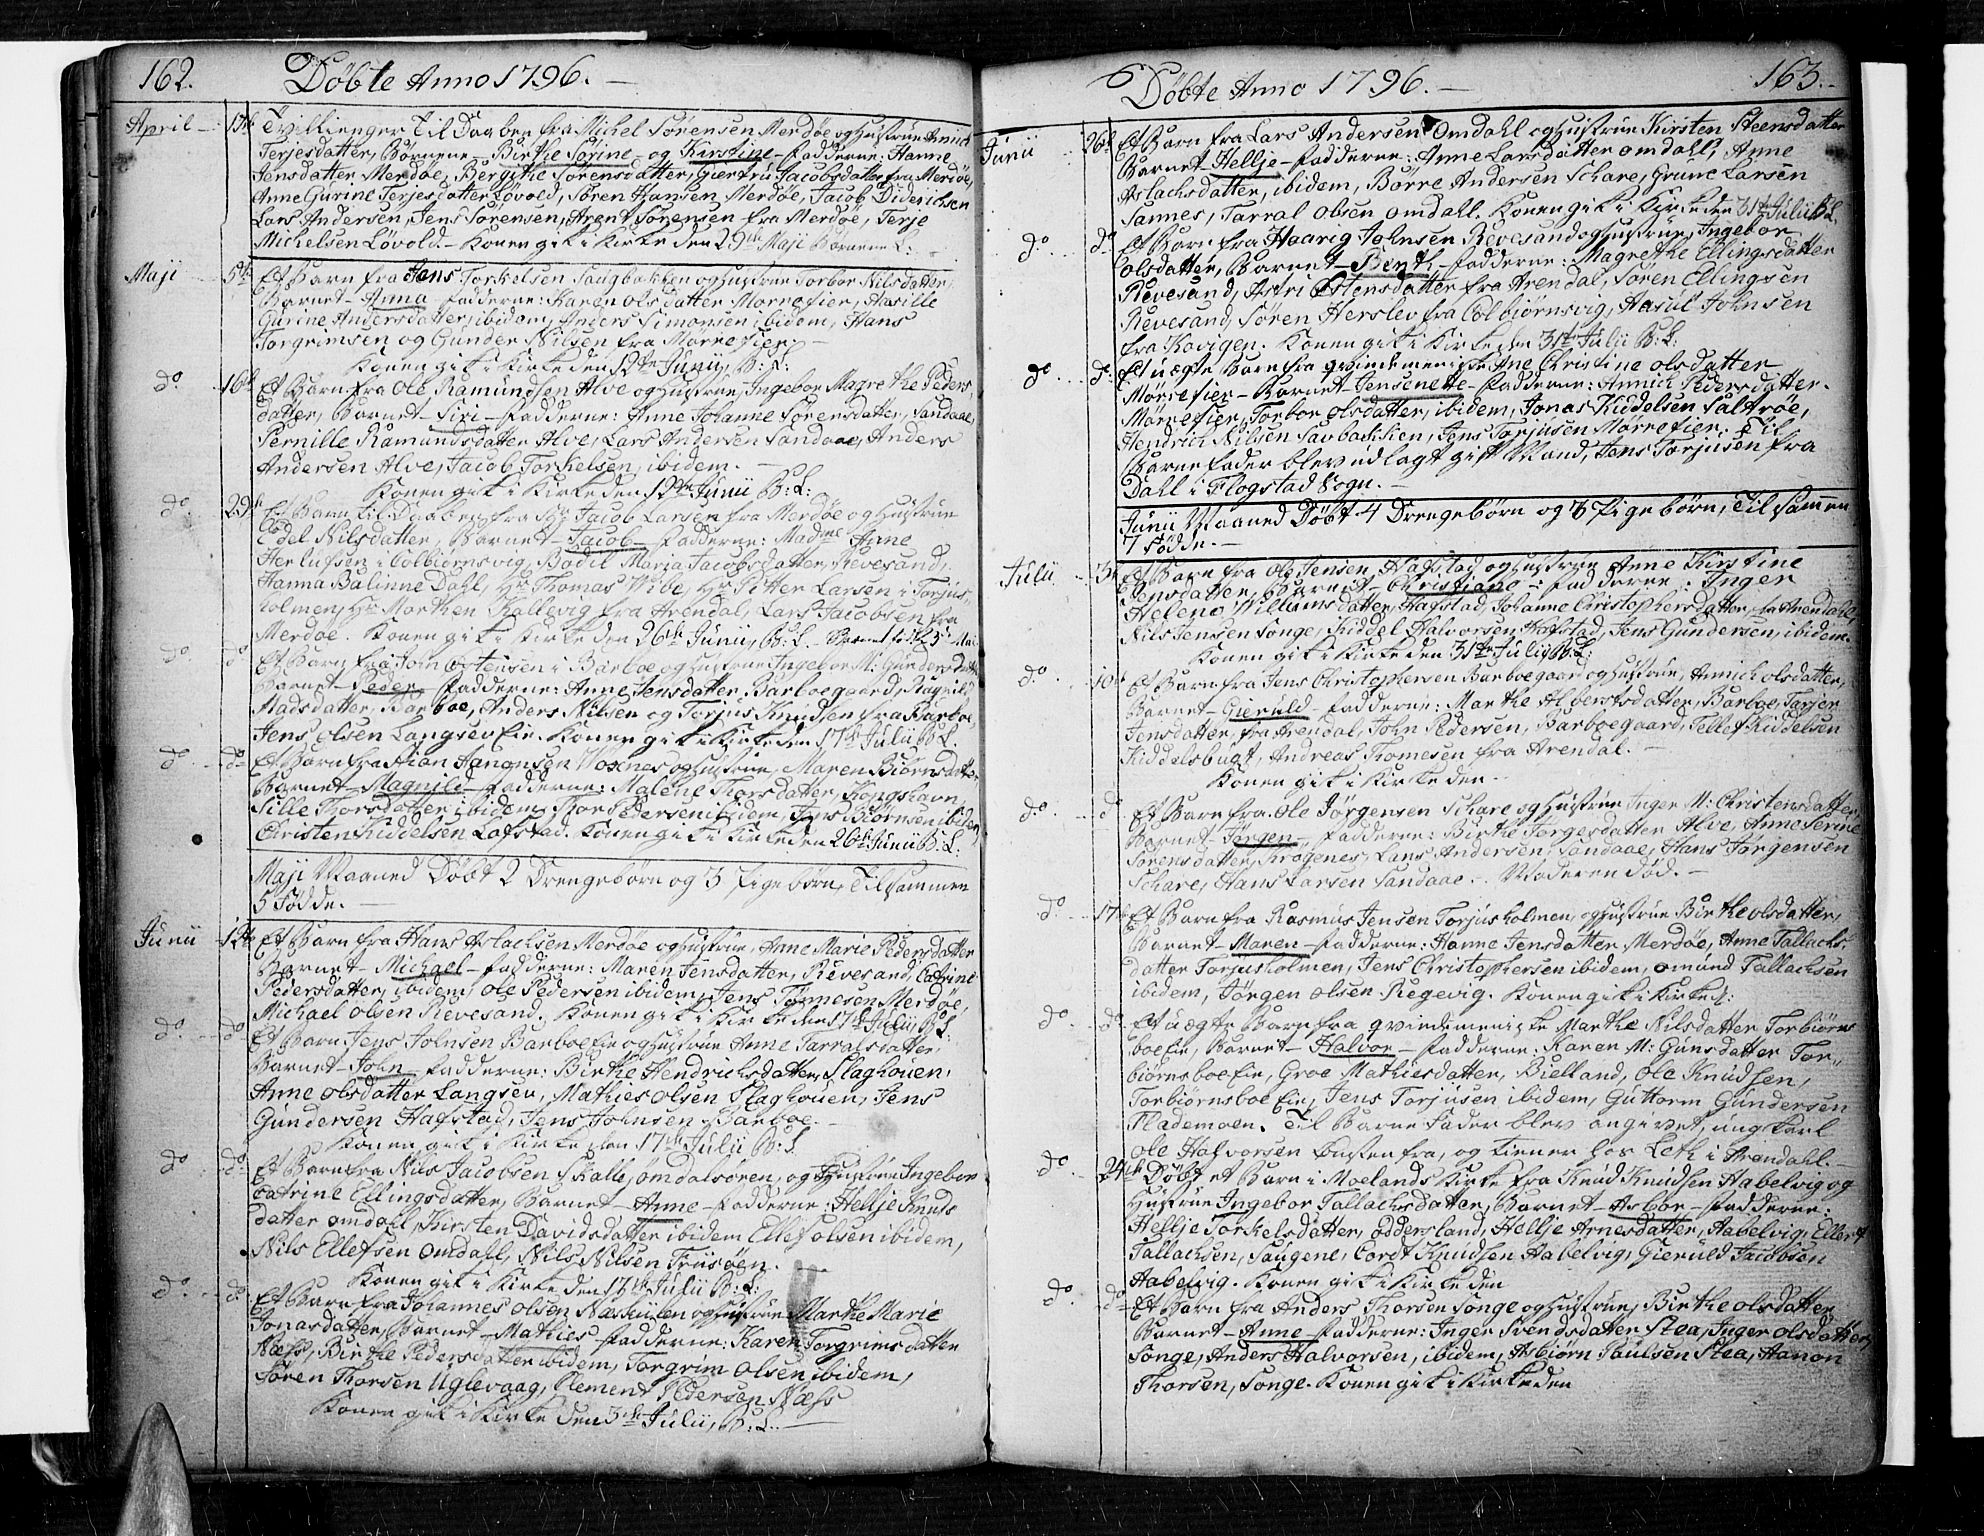 162. Døbte Anno 1796.
April 13de Tvillinger til Daaben fra Michel Sørensen Merdøe og Hustrue Annich
Terjesdatter, Børnene Birthe Sørine og Kirstine – Fadderne: Hanne
Jensdatter Merdøe, Bergithe Sørensdatter, Giertru Jacobsdatter fra Merdøe,
Anne Gurine Terjesdatter Løvold, Søren Hansen Merdøe, Jacob Diderichsen
Lars Andersen, Jens Sørensen, Arent Sørensen fra Merdøe, Terje
Michelsen Løvold. – Konen gik i Kirke den 29de Maji Børnene L:
Maji 5te Et Barn fra Jens Torkelsen Saugbakken og Hustrue Torbor Nilsdatter,
Barnet – Anna – Fadderne: Karen Olsdatter Morrefier, Aasille
Gurine Andersdatter, ibidem, Anders Simonsen ibidem, Hans
Torgrimsen og Gunder Nilsen fra Morrefier. –
Konen gik i Kirke den 12te Junii, B: L:
do 16de Et Barn fra Ole Ramundsen Alve og Hustrue, Ingebor Magrethe Peders
datter, Barnet – Siri – Fadderne: Anne Johanne Sørensdatter, Sandaae,
Pernille Ramundsdatter Alve, Lars Andersen Sandaae, Anders
Andersen Alve, Jacob Torkelsen, ibidem. –
Konen gik i Kirke den 12te Junii B: L:
do 29de Et Barn til Daaben fra Hr Jacob Larsen fra Merdøe og Hustrue
Edel Nilsdatter, Barnet – Jacob – Fadderne: Madme Anne
Herlufsen i Colbiørnsvig, Bodil Maria Jacobsdatter, Revesand,
Hanna Balinne Dahl, Hr Thomas Wibe, Hr Pitter Larsen i Torjus-
holmen, Hr Morthen Kallevig fra Arendal, Lars Jacobsen fra
Merdøe. Konen gik i Kirke den 26de Junii, B: L. –
do do Et Barn fra Jon Ostensen i Barboe og Hustrue Ingebor M: Gundersdatter
Barnet – Peder – Fadderne: Anne Jensdatter, Barboegaard, Ragnild
Madsdatter, Barboe, Anders Nilsen og Torjus Knudsen fra Barboe
Jens Olsen Langsev Eie. Konen gik i Kirke den 17de Julii B: L.
do do Et Barn fra Aian Aanonsen Woxnes og Hustrue, Maren Biørnsdatter
Barnet – Magnild – Fadderne: Malene Thorsdatter, Kongshavn
Sille Thorsdatter ibidem, Thor Pedersen ibidem, Jens Biørnsen ibidem
Christen Kiddelsen Lofstad. Konen gik i Kirke den 26de Junii B: L:
Maji Maaned Døbt 2 Drengebørn og 3 Pigebørn, Tilsammen
5 Fødde. –
Junii 12te Et Barn fra Hans Aslachsen Merdøe og Hustrue, Anne Marie Pedersdatter
Barnet – Michael – Fadderne: Maren Jensdatter, Revesand, Catrine
Pedersdatter, ibidem, Ole Pedersen ibidem, Jens Tønnesen Merdøe,
Michael Olsen Revesand. Konen gik i Kirke den 17de Julii, B: L:
do do Et Barn Jens Johnsen Barboe Eie og Hustrue Anne Tarralsdatter,
Barnet – John – Fadderne: Birthe Hendrichsdatter, Flaghouen,
Anne Olsdatter Langsev, Mathies Olsen Flaghouen, Jens
Gundersen Hafstad, Jens Johnsen Barboe. –
Konen gik i Kirke den 17de Julii B: L
do do Et Barn fra Nils Jacobsen Skalle, Omdalsøren, og Hustrue Ingebor
Catrine Ellingsdatter, Barnet – Anne – Fadderne: Hellje Knuts
datter Omdahl, Kirsten Davidsdatter ibidem Ellef Olsen ibidem,
Nils Ellefsen Omdahl, Nils Nilsen Friisøen.
Konen gik i Kirke den 17de Julii B: L:
do do Et Barn fra Johannes Olsen Næskiilen og Hustrue Marthe Marie
Jonasdatter, Barnet – Mathies – Fadderne: Karen Torgrimsdatter
Næss, Birthe Pedersdatter ibidem, Torgrim Olsen ibidem,
Søren Thorsen Uglevaag, Clement Pedersen Næss
Konen gik i Kirke den 3de Julii, B: L.
Døbte Anno 1796. – 163.
Junii 26de Et Barn fra Lars Andersen Omdahl og Hustrue Kirsten Steensdatter
Barnet Hellje – Fadderne: Anne Larsdatter Omdahl, Anne
Aslachsdatter, ibidem, Børre Andersen Schare, Grunc Larsen
Sannes, Tarral Olsen Omdall. Konen gik i Kirke den 31te Julii B: L
do do Et Barn fra Haavig Johnsen Revesand og Hustrue, Ingebor
Olsdatter, Barnet – Berth – Fadderne: Magrethe Ellingsdatter
Revesand, Astri Ostensdatter fra Arendal, Søren Ellingsen
Revesand, Søren Herslev fra Colbiørnsvig, Hasul Johnsen
fra Kovigen. Konen gik i Kirke den 31te Julii B: L:
do do Et uægte Barn fra qvindemenniske Ane Christine Olsdatter
Mørrefier – Barnet – Jensenete – Fadderne: Annich Pedersdatter.
Mørrefier, Torbor Olsdatter, ibidem, Jonas Kiddelsen Saltrøe,
Hendrich Nilsen Savbackkien, Jens Torjusen Mørrefier. Til
Barnefader blev udlagt gift Mand, Jens Torjusen fra
Dahl i Flogstad Sogn. –
Junii Maaned Døbt 4 Drengebørn og 3 Pigebørn, Tilsammen
7 Fødde. –
Julii 3de Et Barn fra Ole Jensen, Hagstad og Hustrue Anne Kirstine
Jensdatter, Barnet – Christiane – Fadderne: Inger
Helene Williumsdatter, Hagstad, Johanne Christophersdatter, fra Arendahl,
Nils Jensen Songe, Kiddel Halvorsen, Hafstad, Jens Gundersen, ibidem.
Konen gik i Kirke den 31te Julii B: L:
do 10de Et Barn fra Jens Christophersen Barboegaard og Hustrue, Annich Olsdatter,
Barnet – Gieruld – Fadderne: Marthe Alvertsdatter, Barboe, Tarjer
Jensdatter, fra Arendal, John Pedersen, Barboegaard, Tellef Kiddelsen
Kiddelsbugt, Andreas Thomesen fra Arendal. –
Konen gik i Kirke den –
do do Et Barn fra Ole Jørgensen Schare og Hustrue Inger M: Christensdatter,
Barnet – Jørgen – Fadderne: Birthe Jørgesdatter Alve, Anne Serine
Sørensdatter, Krogenes, Lars Andersen, Sandaae, Hans Jørgensen
Schare, Hans Larsen Sandaae. – Moderen død. –
do 17de Et Barn fra Rasmus Jensen Torjusholmen, og Hustrue Birthe Olsdatter,
Barnet – Maren – Fadderne: Hanne Jensdatter, Merdøe, Anne Tallachs-
datter Torjusholmen, Jens Christophersen ibidem, Omund Tallachsen
ibidem, Jørgen Olsen Regevig. Konen gik i Kirke d:
do do Et uægte Barn fra qvindemenniske Marthe Nilsdatter Torbiørns
boe Eie, Barnet – Halvor – Fadderne: Karen M: Gunsdatter Tor-
biørnsboe Eie, Groe Mathiesdatter, Bielland, Ole Knudsen,
Torbiørnsboe Eie, Jens Torjusen ibidem, Guttorm Gundersen
Flademoen. Til Barne Fader blev angivet, ung Karl
Ole Halvorsen Tousten fra, og tiener hos Leth i Arendahl. –
do 24de Døbt et Barn i Moelands Kirke fra Knud Knudsen Habelvig og
Hustrue Ingebor Tallachsdatter, Barnet – Asbor – Fadderne:
Hellje Torkelsdatter, Eddersland, Hellje Arnesdatter, Aabelvig, Ellev
Tallachsen, Saugene, Cordt Knudsen Habelvig, Gieruld Jacobsen
Aabelvig. Konen gik i Kirke den
do do Et Barn fra Anders Thorsen Songe og Hustrue, Birthe Olsdatter
Barnet – Anne – Fadderne: Inger Svendsdatter Stea, Inger Olsdatter,
Songe, Anders Halvorsen, ibidem, Asbiørn Paulsen Stea, Aanon
Thorsen, Songe. Konen gik i Kirke den